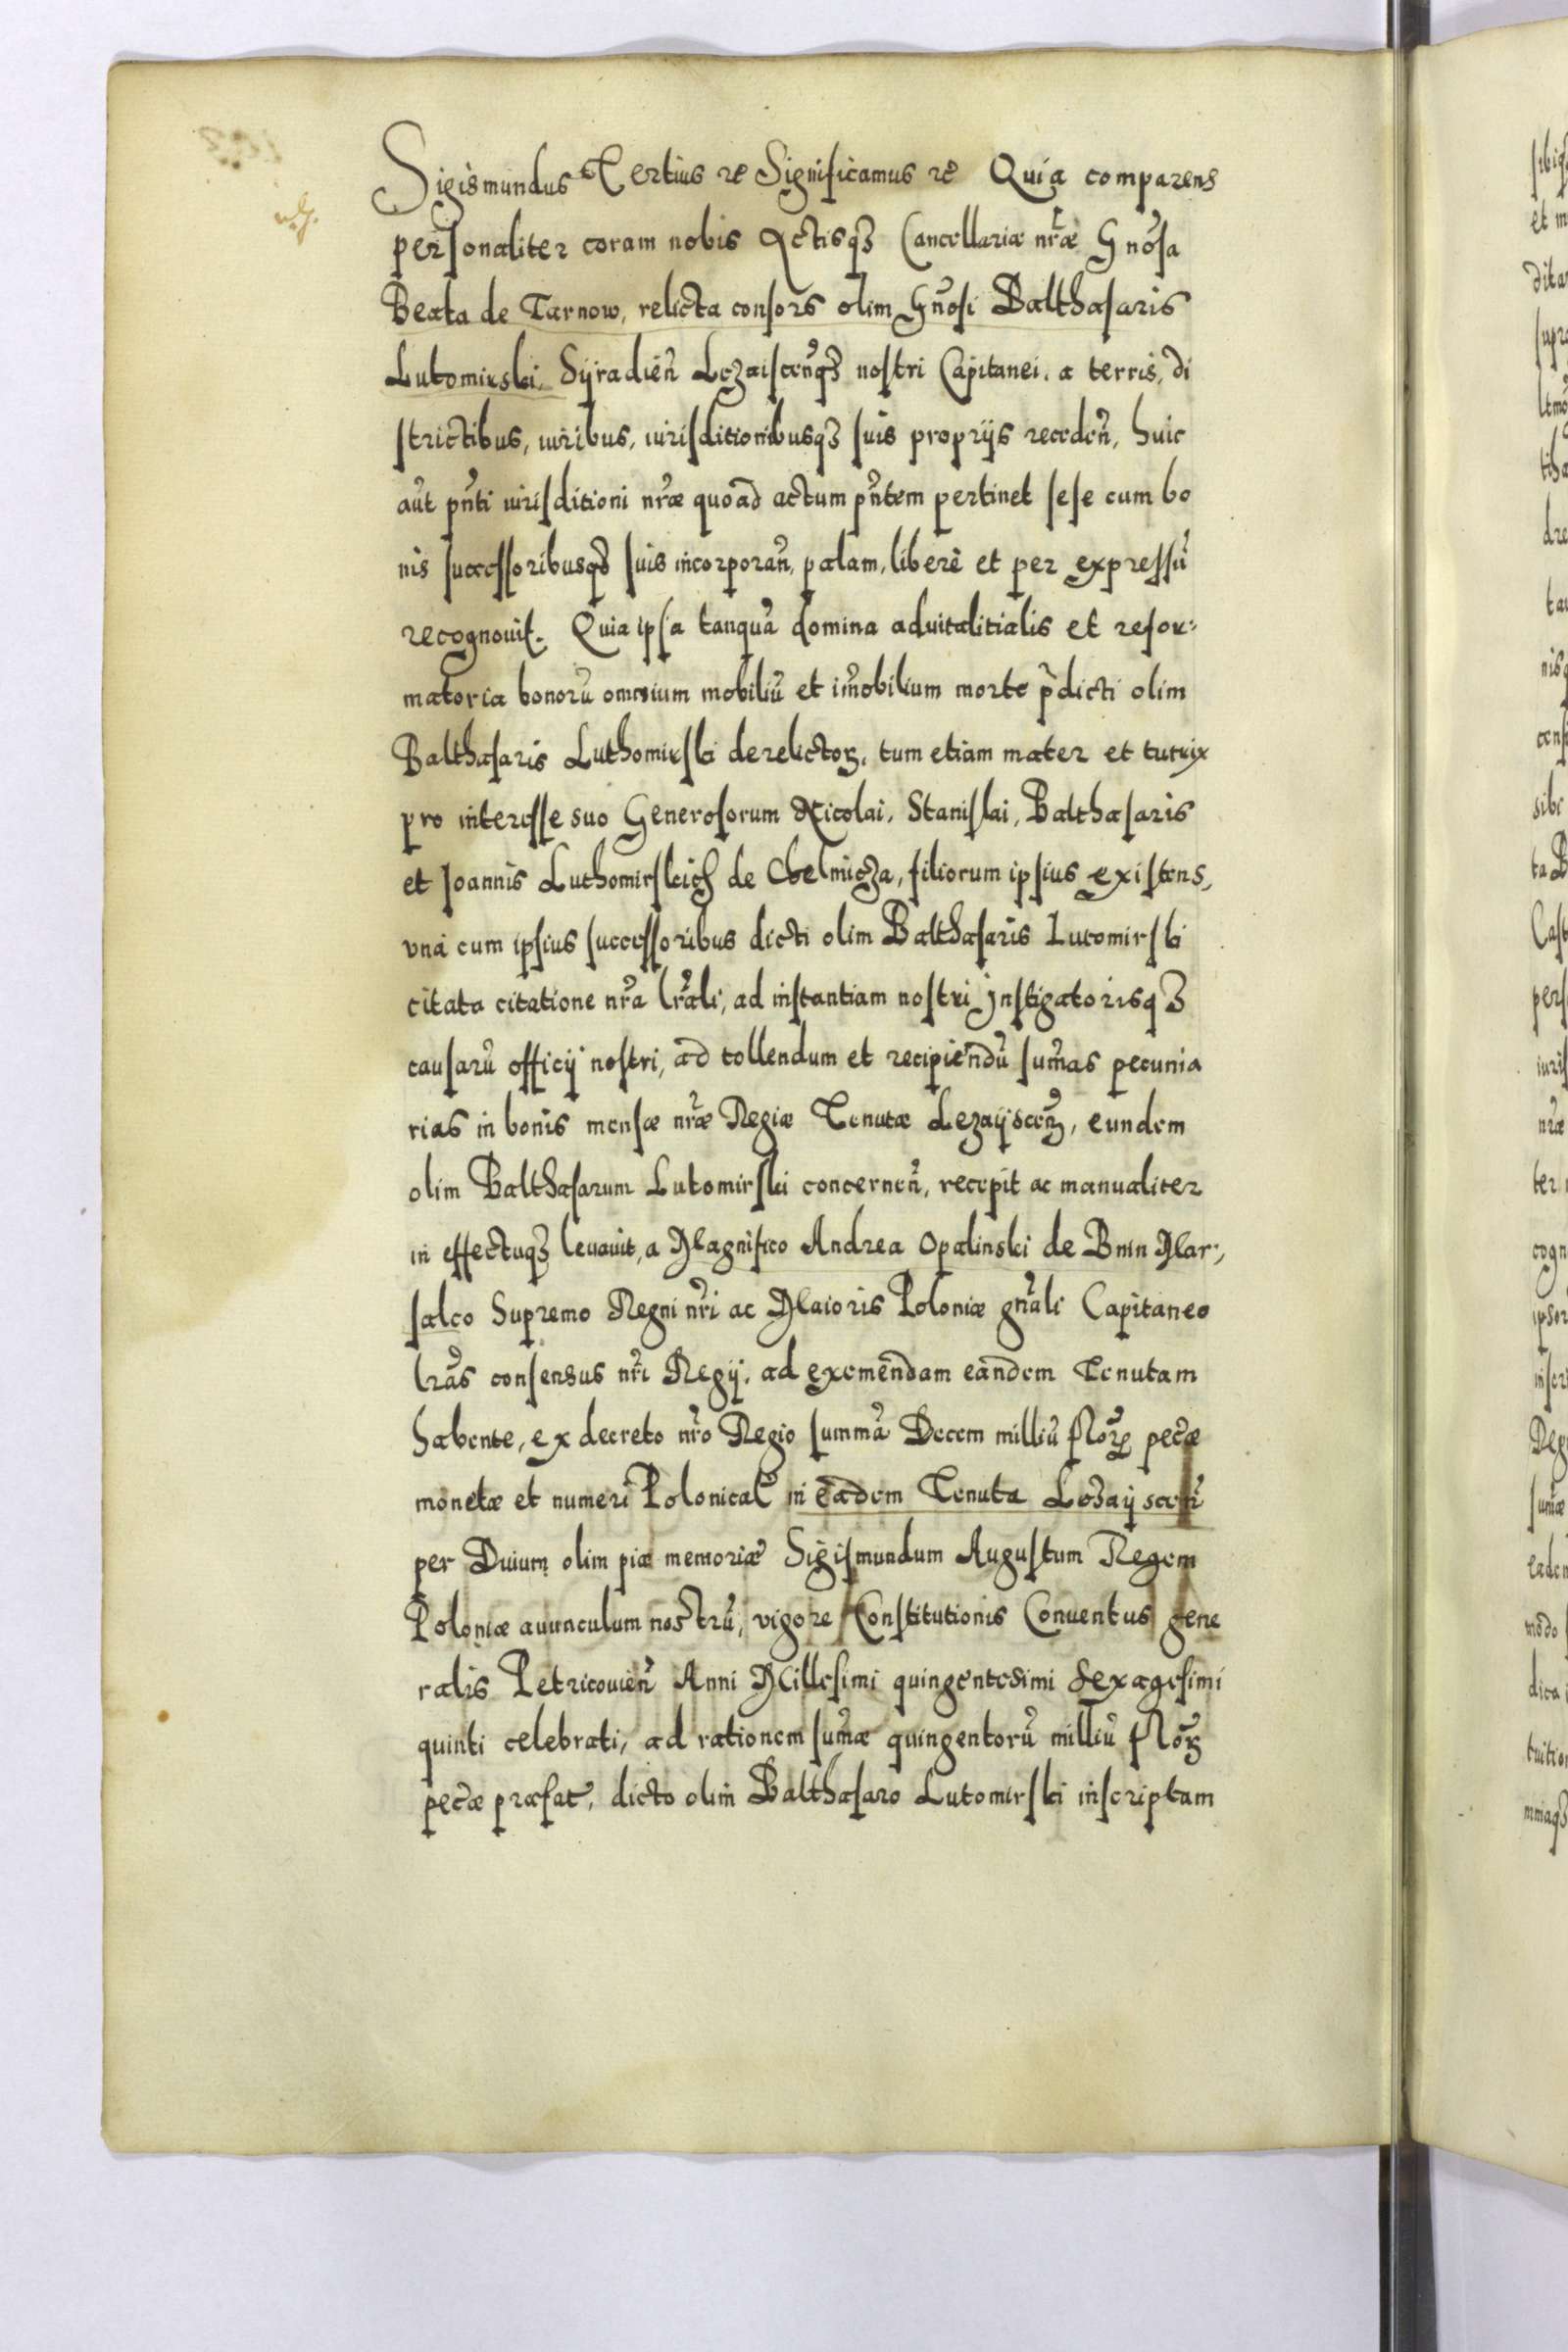 Sigismundus Tertius etc Significamus etc Quia comparens
personaliter coram nobis Actisqз Cancellariæ nr̃æ Gnõsa
Beata de Tarnow, relicta consors olim Gnõsi Balthasaris
Lutomirski, Syradieñ Lezaisceñqз nostri Capitanei, a terris, di
strictibus, iuribus, iurisditionibusqз suis proprijs recedeñ, huic
aũt pñti iurisditioni nr̃æ quoad actum pñtem pertinet sese cum bo
nis successoribusqз suis incorporañ, palam, liberè et per expressũ
recognouit. Quia ipsa tanquã domina aduitalitialis et refor:
matoria bonorũ omnium mobiliũ et im̃obilium morte p̃dicti olim
Balthasaris Luthomirski derelictoꝝ, tum etiam mater et tutrix
pro interesse suo Generosorum Nicolai, Stanislai, Balthasaris
et Joannis Luthomirskich de Chelmicza, filiorum ipsius existens,
vna cum ipsius successoribus dicti olim Balthasaris Lutomirski
citata citatione nr̃a lr̃ali, ad instantiam nostri Instigatorisqз
causarũ officij nostri, ad tollendum et recipiendũ sum̃as pecunia
rias in bonis mensæ nr̃æ Regiæ Tenutæ Lezayisceñ, eundem
olim Balthasarum Lutomirski concerneñ, recepit ac manualiter
in effectuqз leuauit, a Magnifico Andrea Opalinski de Bnin Mar:
salco Supremo Regni nr̃i ac Maioris Poloniæ gnr̃ali Capitaneo
lr̃as consensus nr̃i Regij, ad exemendam eandem Tenutam
habente, ex decreto nr̃o Regio summã Decem milliũ florꝝ pecæ
monetæ et numeri Polonical̃ in eadem Tenuta Lezaijsceñ
per Diuum olim piæ memoriæ Sigismundum Augustum Regem
Poloniæ auunculum nostrũ, vigore Constitutionis Conuentus gene
ralis Petricouieñ Anni Millesimi quingentesimi sexagesimi
quinti celebrati, ad rationem sum̃æ quingentorũ milliũ florꝝ
pecæ præfat̃, dicto olim Balthasaro Lutomirski inscriptam